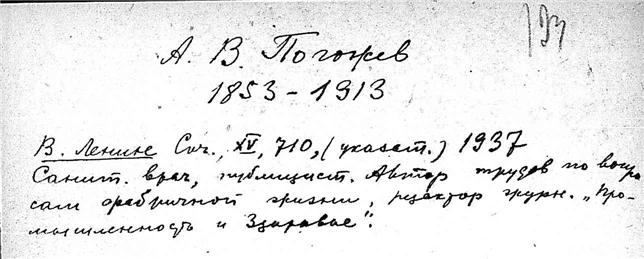 193
А. В. Погожев
1853 - 1913
В. Ленин Соч., XV, 710, (указат.) 1937
Санит. врач, публицист. Автор трудов по вопро
сам фабричной жизни, редактор журн. „Про-
мышленность и Здоровье“.